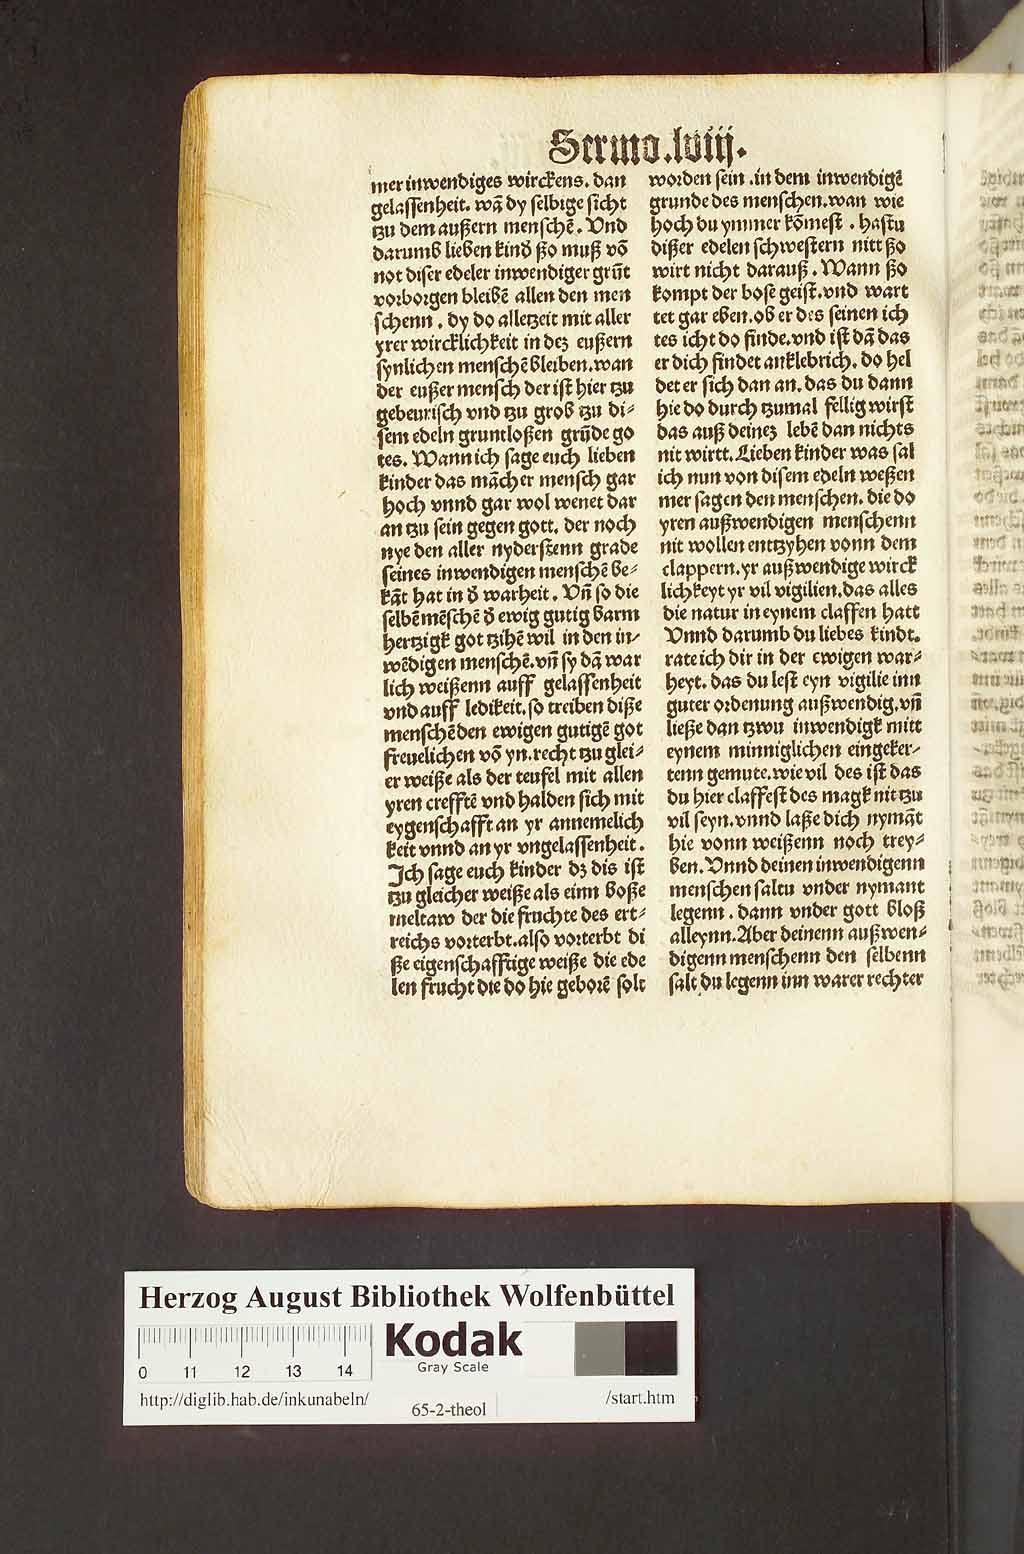 Sermo.lviij.
mer inwendiges wirckens. dan
gelassenheit. wā dy selbige sicht
tzu dem außern menschē. Vnd
darumb lieben kind̄ ßo muß vō
not diser edeler inwendiger grūt
vorborgen bleibē allen den men
schenn . dy do alletzeit mit aller
yrer wircklichkeit in deʒ eußern
synlichen menschē bleiben. wan
der eußer mensch der ist hier tzu
gebeurisch vnd tzu grob tzu di⸗
sem edeln gruntloßen grūde go
tes. Wann ich sage euch lieben
kinder das mācher mensch gar
hoch vnnd gar wol wenet dar
an tzu sein gegen gott. der noch
nye den aller nyderstenn grade
seines inwendigen menschē be⸗
kāt hat in d̄ warheit. Vn̄ so die
selbē mēschē d̄ ewig gutig barm
hertzigk got tzihē wil in den in⸗
wēdigen menschē. vn̄ sy dā war
lich weißenn auff gelassenheit
vnd auff ledikeit. so treiben diße
menschē den ewigen gutigē got
freuelichen vō yn. recht tzu glei⸗
er weiße als der teufel mit allen
yren crefftē vnd halden sich mit
eygenschafft an yr annemelich
keit vnnd an yr vngelassenheit.
Jch sage euch kinder dʒ dis ist
tzu gleicher weiße als einn boße
meltaw der die fruchte des ert⸗
reichs vorterbt. also vorterbt di
ße eigenschafftige weiße die ede
len frucht die do hie geborē solt
worden sein . in dem inwendigē
grunde des menschen. wan wie
hoch du ymmer kōmest . hastu
dißer edelen schwestern nitt ßo
wirt nicht darauß. Wann ßo
kompt der bose geist. vnd wart
tet gar eben. ob er des seinen ich
tes icht do finde. vnd ist dā das
er dich findet anklebrich. do hel
det er sich dan an. das du dann
hie do durch tzumal fellig wirst
das auß deineʒ lebē dan nichts
nit wirtt. Lieben kinder was sal
ich nun von disem edeln weßen
mer sagen den menschen. die do
yren außwendigen menschenn
nit wollen enttzyhen vonn dem
clappern. yr außwendige wirck
lichkeyt yr vil vigilien. das alles
die natur in eynem claffen hatt
Vnnd darumb du liebes kindt.
rate ich dir in der ewigen war⸗
heyt. das du lest eyn vigilie inn
guter ordenung außwendig. vn̄
ließe dan tzwu inwendigk mitt
eynem minniglichen eingeker⸗
tenn gemute. wie vil des ist das
du hier claffest des magk nit tzu
vil seyn. vnnd laße dich nymāt
hie vonn weißenn noch trey⸗
ben. Vnnd deinen inwendigenn
menschen saltu vnder nymant
legenn . dann vnder gott bloß
alleynn. Aber deinenn außwen⸗
digenn menschenn den selbenn
salt du legenn inn warer rechter
Herzog August Bibliothek Wolfenbüttel
Kodak
Gray Scale
0 11 12 13 14
http://diglib.hab.de/inkunabeln/
65-2-theol
/start.htm